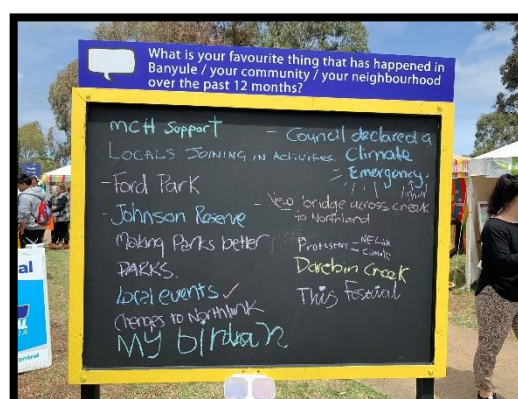 What is your favourite thing that has happened in
Banyule / your community / your neighbourhood
over the past 12 months?
MCH Support
LOCALS JOINING IN Activities.
- Ford Park
- Johnson Reserve
Making Parks better
PARKS.
local events ✓
changes to Northlink
My
- Council declared a
Climate
Emergency.
- New bridge across creek
to Northland
Protesters - NE Link
- Climate
Darebin Creek
This Festival